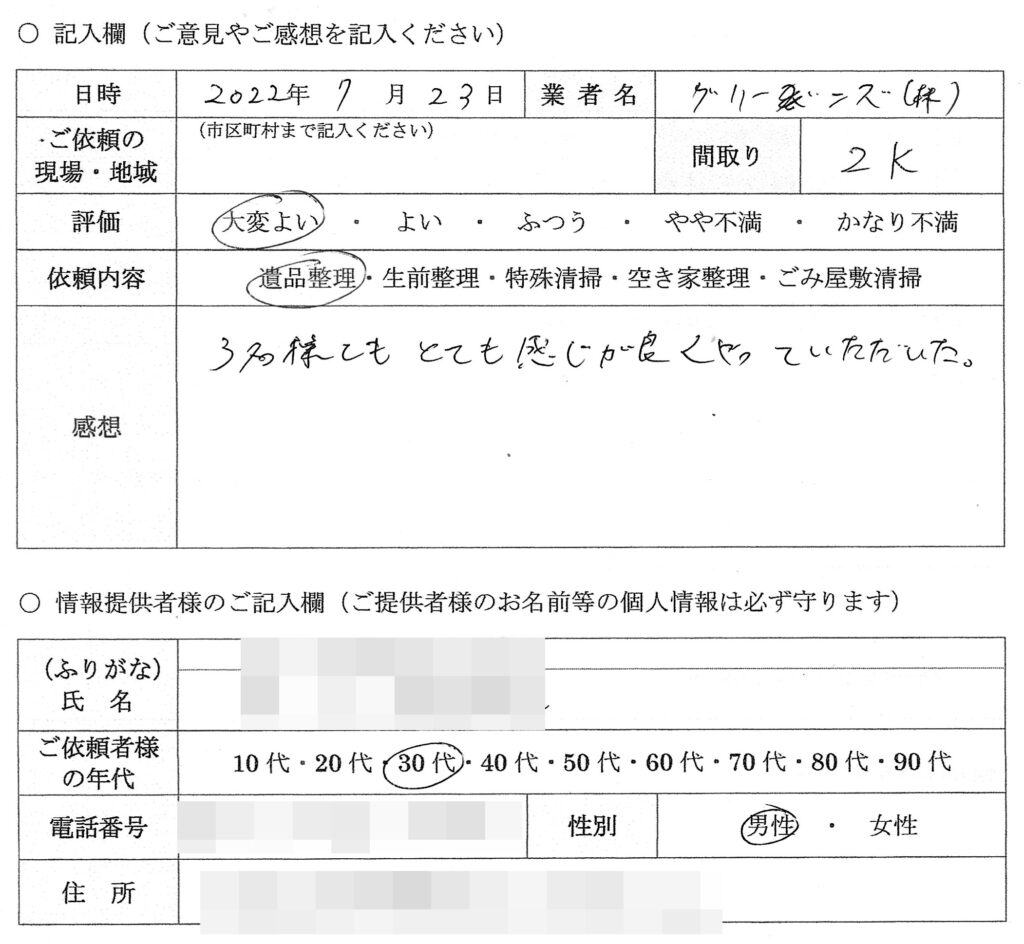 ○ 記入欄（ご意見やご感想を記入ください）
日時 2022年 7 月 23日 業者名 グリーンズ(株)
ご依頼の現場・地域 (市区町村まで記入ください) 間取り 2K
評価 大変よい ・ よい ・ ふつう ・ やや不満 ・ かなり不満
依頼内容 遺品整理・生前整理・特殊清掃・空き家整理・ごみ屋敷清掃
感想 3名様とも とても感じが良くやっていただいた。
○ 情報提供者様のご記入欄（ご提供者様のお名前等の個人情報は必ず守ります）
（ふりがな）
氏 名
ご依頼者様の年代 10代・20代・30代・40代・50代・60代・70代・80代・90代
電話番号 性別 男性 ・ 女性
住 所